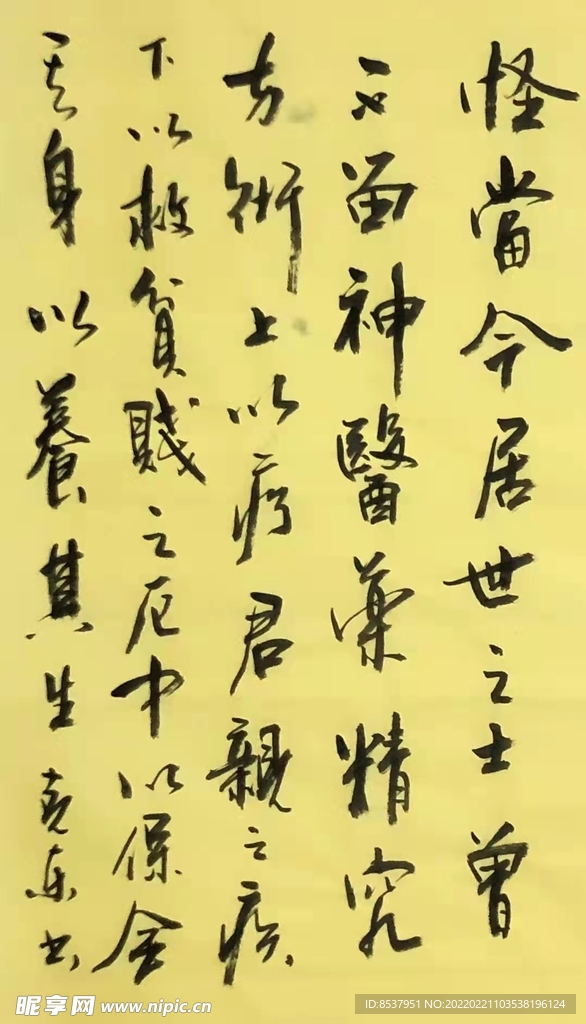 怪當今居世之士曾
不留神醫藥精究
方術上以疗君親之疾
下以救貧賤之厄中以保全
其身以養其生 克东书
昵享网 www.nipic.cn
ID:8537951 NO:20220221103538196124